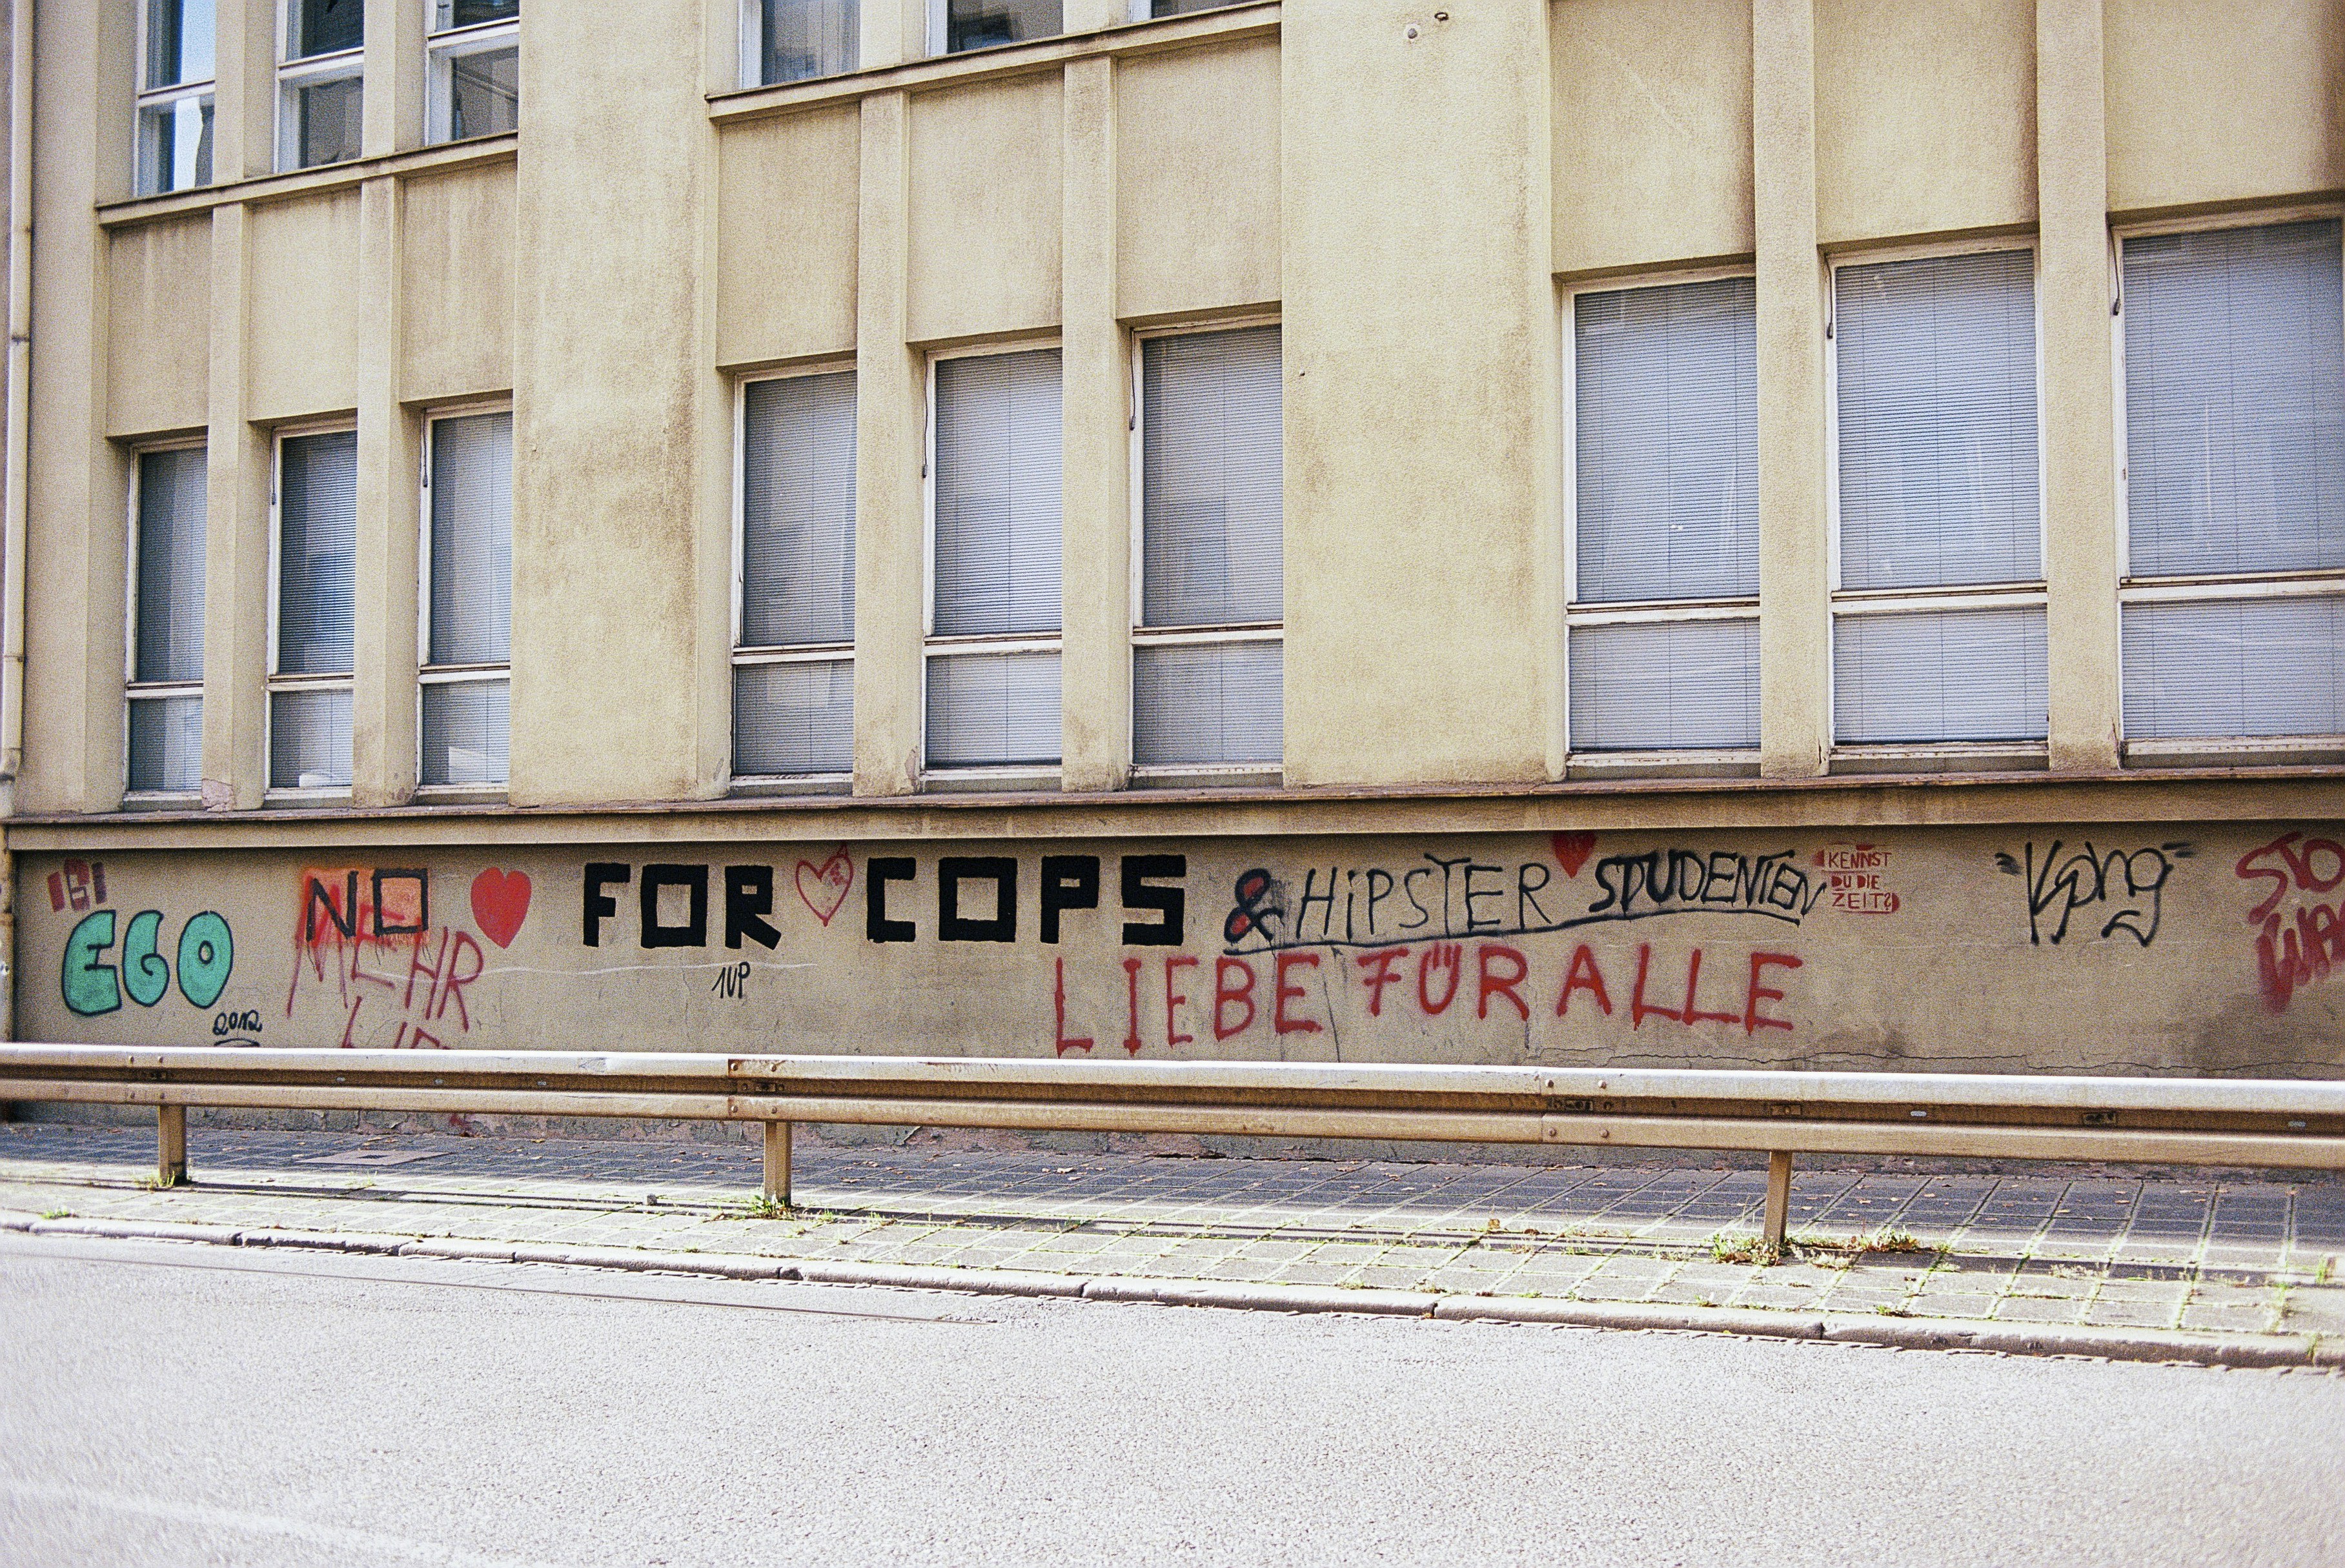 161
EGO
2012
NO ♥ FOR COPS & HiPSTER STUDENTEN
MEHR
1UP
LIEBE FÜR ALLE
KENNST
DU DIE
ZEIT?